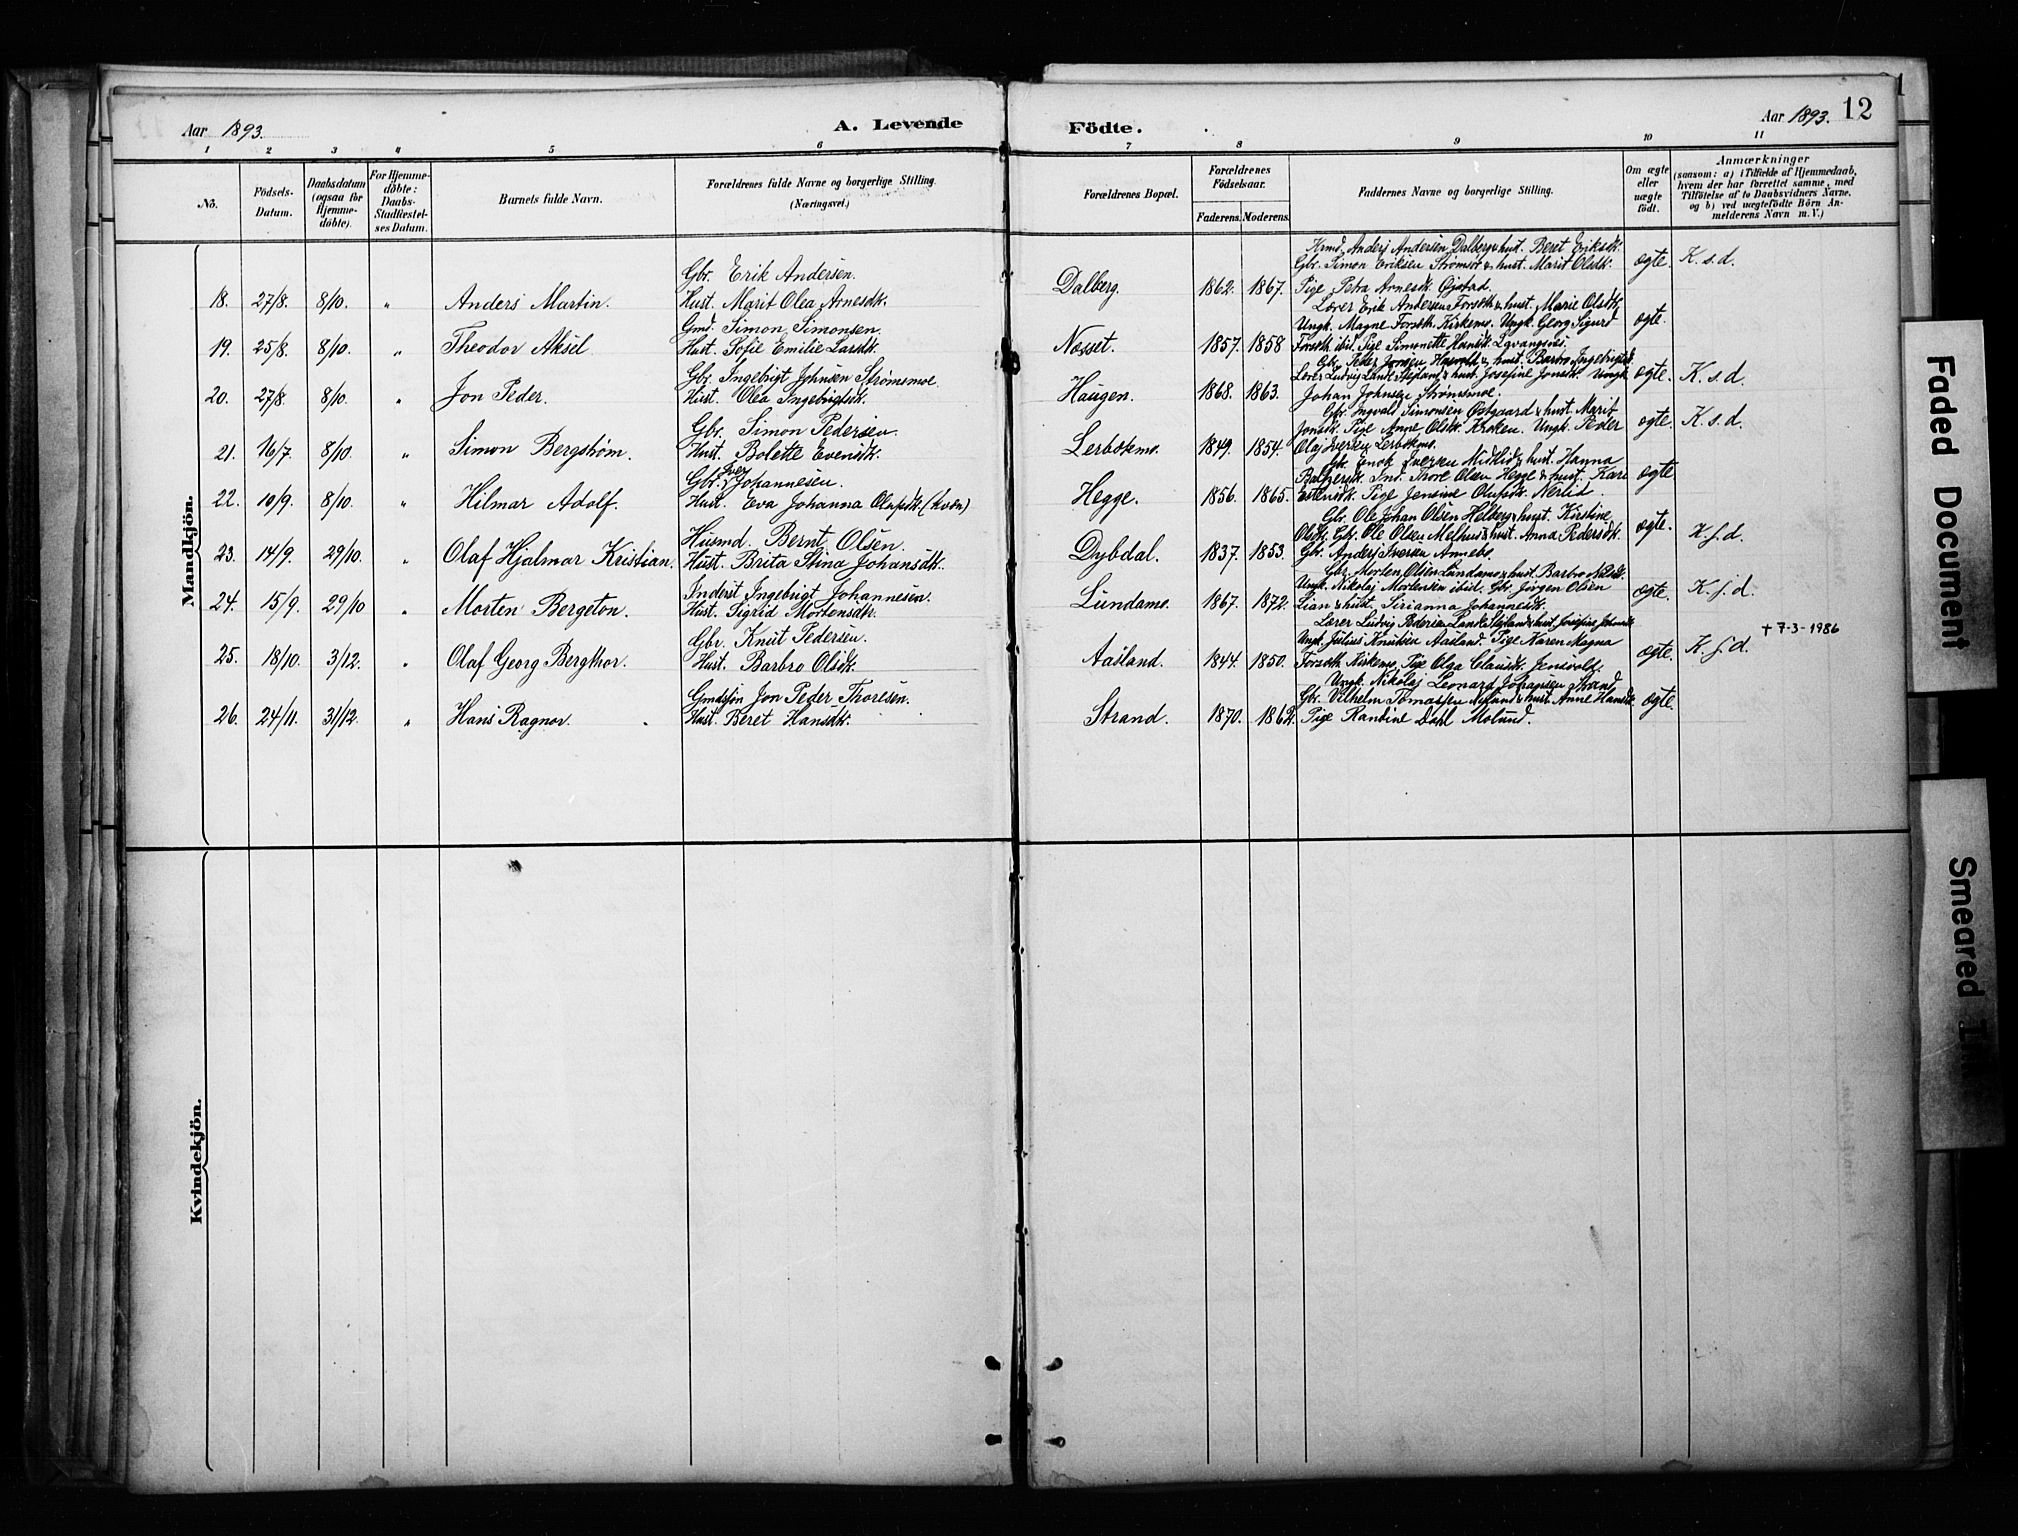 Aar 1893.
A. Levende
Födte.
Aar 1893. 12
1 2 3 4 5 6 7 8 9 10 11
No.
Födsels-Datum.
Daabsdatum (ogsaa for Hjemme-döbte).
For Hjemme-döbte: Daabs-Stadfæstel-ses Datum.
Barnets fulde Navn.
Forældrenes fulde Navne og borgerlige Stilling. (Næringsvei.)
Forældrenes Bopæl.
Forældrenes Födselsaar.
Faderens. Moderens.
Faddernes Navne og borgerlige Stilling.
Om ægte eller uægte födt.
Anmærkninger
(saasom: a) i Tilfælde af Hjemmedaab, hvem der har forrettet samme, med Tilföielse af to Daabsvidners Navne, og b) ved uægtefödte Börn An-melderens Navn m. V.)
Mandkjön.
18. 27/8. 8/10. " Anders Martin. Gbr. Erik Andersen. Hust. Marit Olea Arnesdk. Dalberg. 1862. 1867. Krmd. Anders Andersen Dalberg & hust. Beret Eriksdk. Gbr. Simon Eriksen Strømsør & hust. Marit Olsdk. Pige Petra Arnesdk. Øjstad. ægte. K. s. d.
19. 25/8. 8/10. " Theodor Aksel Gmd. Simon Simonsen. Hust. Sofie Emilie Larsdk. Næsset. 1857. 1858 Lærer Erik Andersen Forseth & hust. Marie Olsdk. Ungk. Magne Forseth Kirkemo. Ungk. Georg Sigurd Forseth ibid. Pige Simonette Hansdk. ægte.
20. 27/8. 8/10. " Jon Peder. Gbr. Ingebrigt Johnsen Strømsmoe. Hust. Olea Ingebrigtsdk. Haugen. 1868. 1863. Gbr. Peder Jonsen & hust. Barbro Ingebrigtsd. Lærer Ludvig Lande & hust. Josefine Jonsdk. Ungk. Johan Johnsen Strømsmoe. ægte. K. s. d.
21. 16/7. 8/10. " Simon Bergstrøm. Gbr. Simon Pedersen. Hust. Bolette Evensdk. Lerbækmo. 1849. 1854. Gbr. Ingvald Simonsen Østgaard & hust. Marit Jonsdk. Pige Anne Olsdk. Kroken. Ungk. Peder Olaj Iversen Lerbækmo. ægte. K. s. d.
22. 10/9. 8/10. " Hilmar Adolf. Gbr. Iver Johannesen. Hust. Eva Johanna Olufsdk. (kvæn) Hegge. 1856. 1865. Gbr. Enok Iversen Midtlid & hust. Hanna Baltzersdk. Ind. Thore Olsen Hegge & hust. Kari Estensdk. Pige Jensine Olufsdk. Nerlid. ægte
23. 14/9. 29/10. " Olaf Hjalmar Kristian. Husmd. Bernt Olsen. Hust. Brita Stina Johansdk. Dybdal. 1837. 1853. Gbr. Ole Johan Olsen Helberg & hust. Kirstine Olsdk. Gbr. Ole Olsen Melhus & hust. Anna Pedersdk. Gbr. Anders Iversen Annebo. ægte. K. s. d.
24. 15/9. 29/10 " Morten Bergeton. Inderst Ingebrigt Johannesen. Hust. Sigrid Mortensdk. Lundamo. 1867. 1872. Gbr. Morten Olsen Lundamo & hust. Barbro Nilsdk. Ungk. Nikolaj Mortensen ibid. Gbr. Jörgen Olsen Lian & hust. Sirianna Johannesdk. ægte. K. s. d.
25. 18/10. 3/12. " Olaf Georg Bergthor. Gbr. Knut Pedersen. Hust. Barbro Olsdk. Aasland. 1844. 1850. Lærer Ludvig Pedersen Lande & hust. Josefine Johnsdk. Ungk. Julius Knutsen Aasland. Pige Karen Magna Forseth Kirkemo. Pige Olga Clausdk. Jensvold. ægte. K. s. d. † 7-3-1986
26. 24/11. 31/12. " Hans Ragnor. Gmdssön Jon Peder Thoresen. Hust. Beret Hansdk. Strand. 1870. 1862. Ungk. Nikolaj Leonard Johansen Strand. Gbr. Vilhelm Tomassen & hust. Anne Hansdk. Pige Ranbine Dahl Molund. ægte.
Kvindekjön.
Faded Document
Smeared